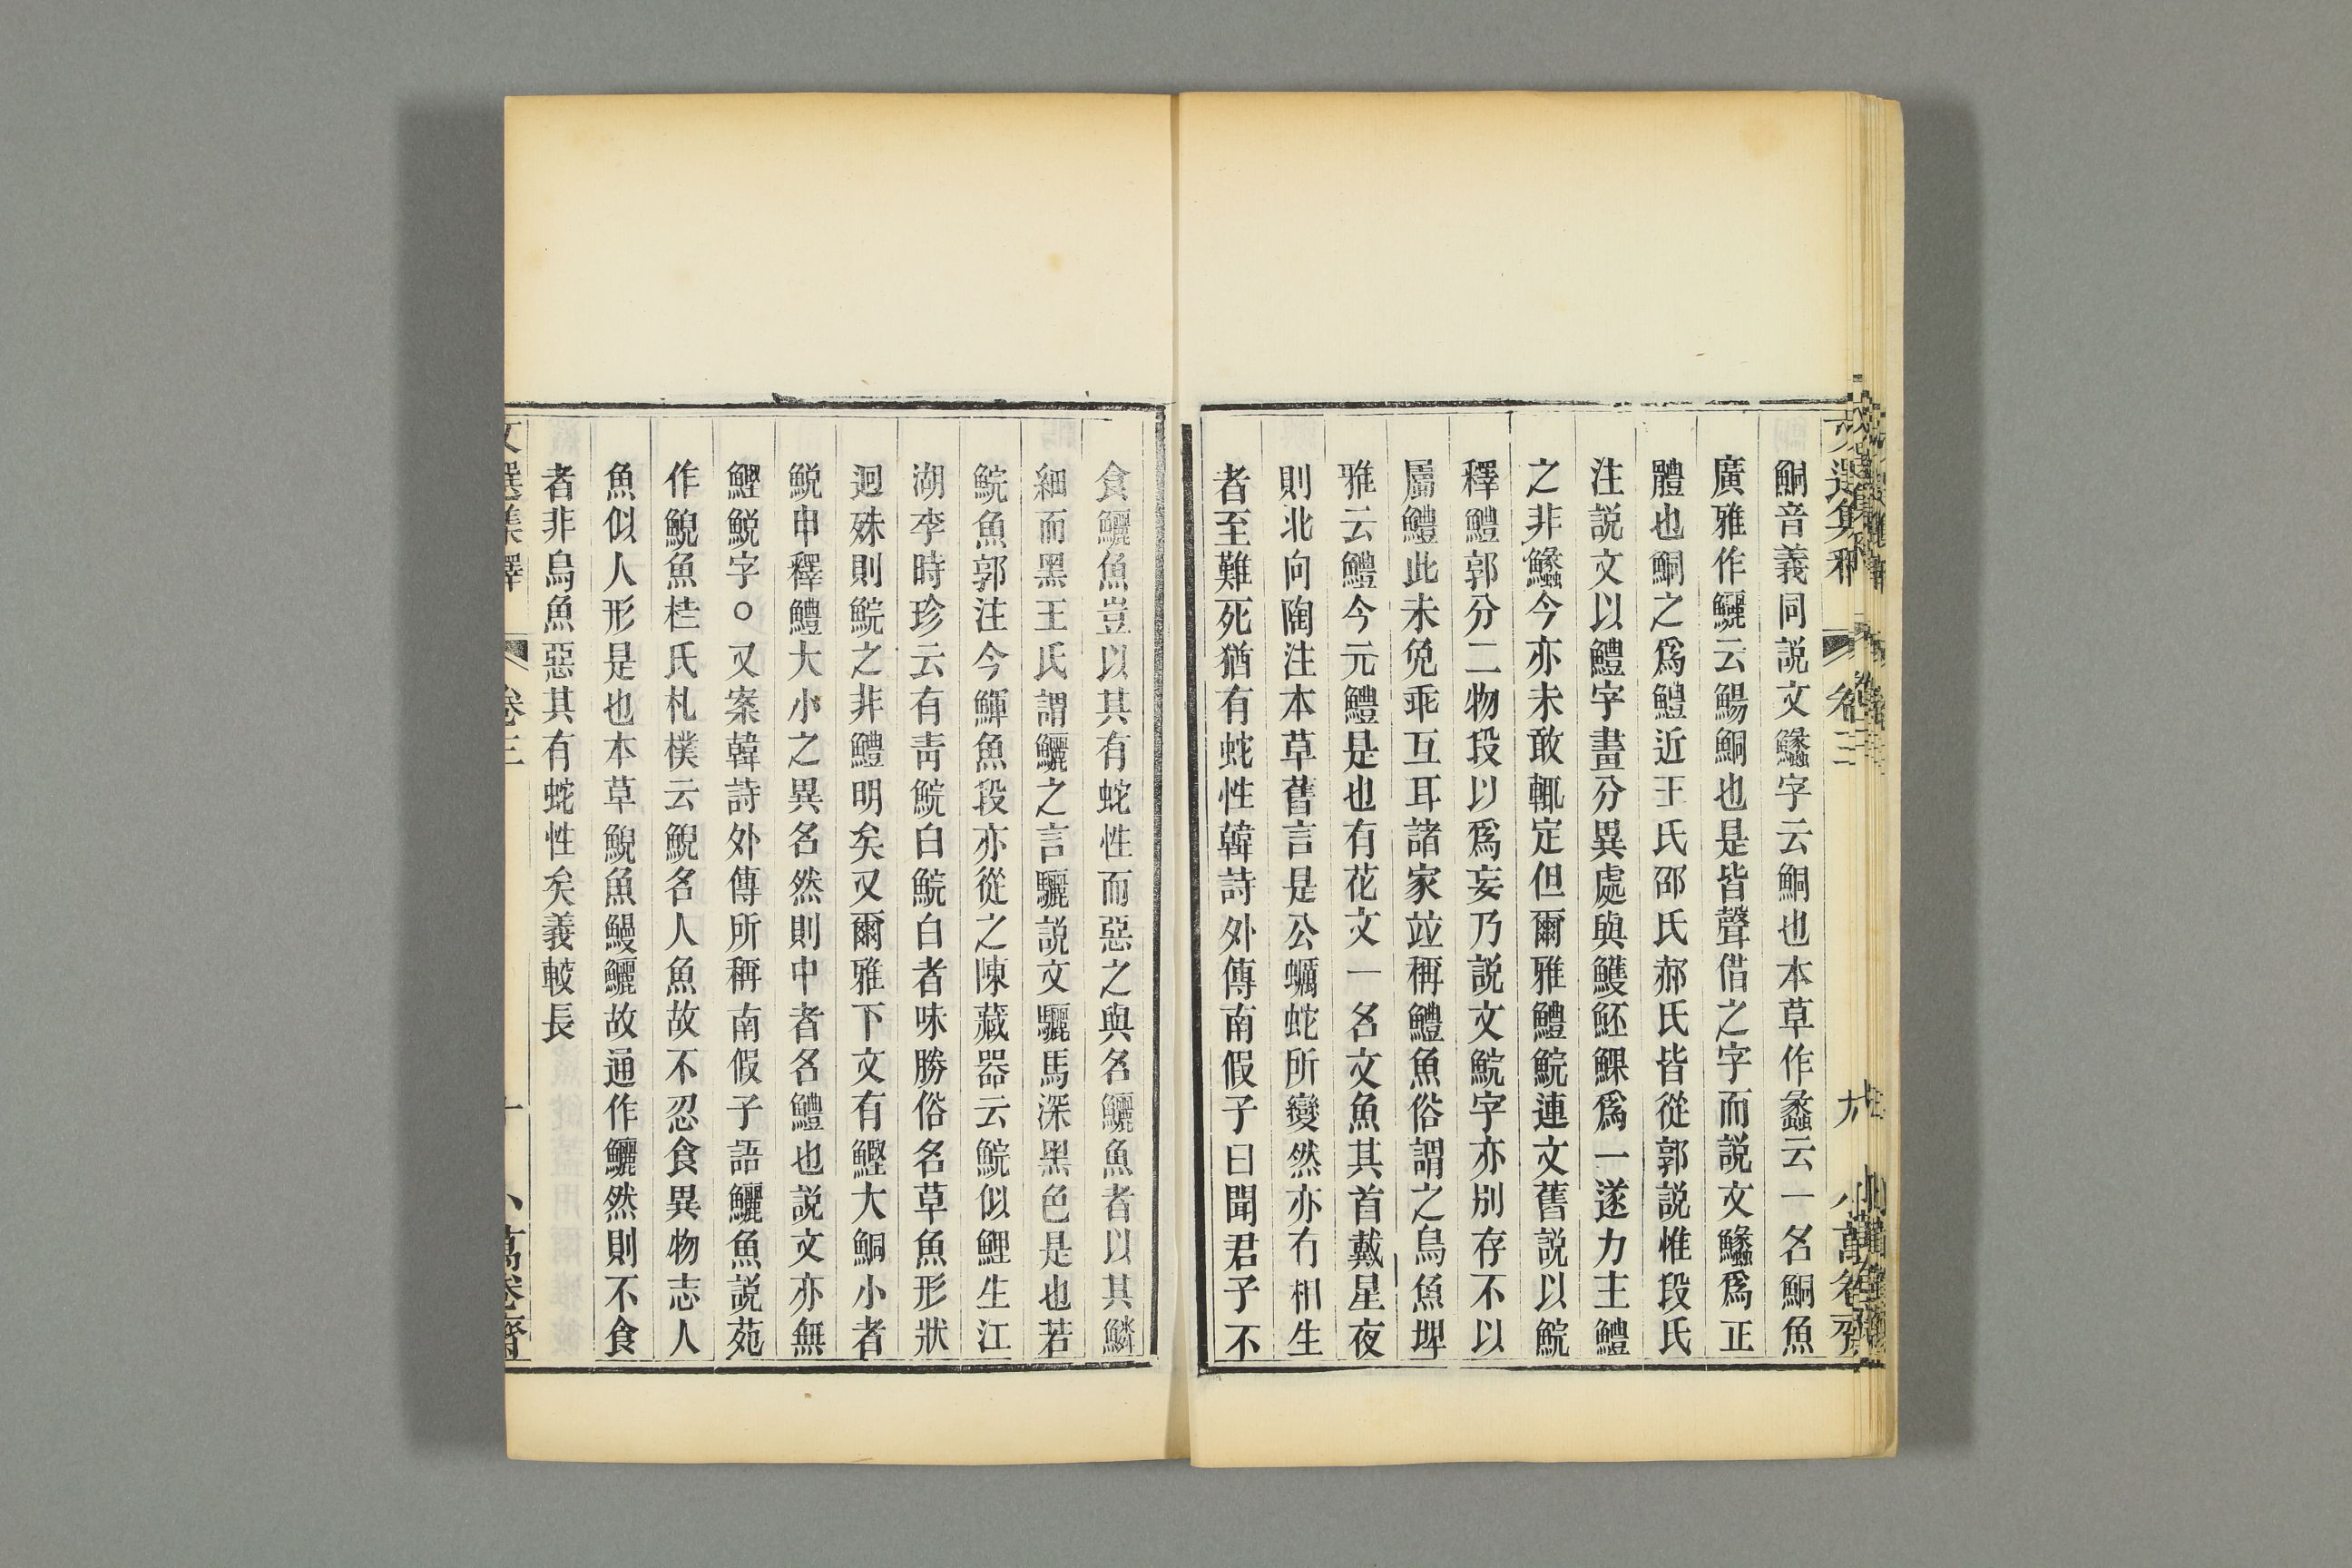 鮦音義同説文䲞字云鮦也本草作蠡云一名鮦魚
廣雅作鱺云鰑鮦也是皆聲借之字而説文䲞爲正
體也鮦之爲鱧近王氏邵氏郝氏皆從郭説惟段氏
注説文以鱧字畫分異處與鱯魾鰥爲一遂力主鱧
之非䲞今亦未敢輒定但爾雅鱧鯇連文舊説以鯇
釋鱧郭分二物段以爲妄乃説文鯇字亦别存不以
屬鱧此未免乖互耳諸家竝稱鱧魚俗謂之烏魚埤
雅云鱧今元鱧是也有花文一名文魚其首戴星夜
則北向陶注本草舊言是公蠣蛇所變然亦有相生
者至難死猶有蛇性韓詩外傳南假子曰聞君子不
食鱺魚豈以其有蛇性而惡之與名鱺魚者以其鱗
細而黑王氏謂鱺之言驪説文驪馬深黑色是也若
鯇魚郭注今鯶魚段亦從之陳藏器云鯇似鯉生江
湖李時珍云有靑鯇白鯇白者味勝俗名草魚形狀
迥殊則鯇之非鱧明矣又爾雅下文有鰹大鮦小者
鮵申釋鱧大小之異名然則中者名鱧也説文亦無
鰹鮵字○又案韓詩外傳所稱南假子語鱺魚説苑
作鯢魚桂氏札樸云鯢名人魚故不忍食異物志人
魚似人形是也本草鯢魚鰻鱺故通作鱺然則不食
者非烏魚惡其有蛇性矣義較長
文選集釋 卷三 小萬卷齋